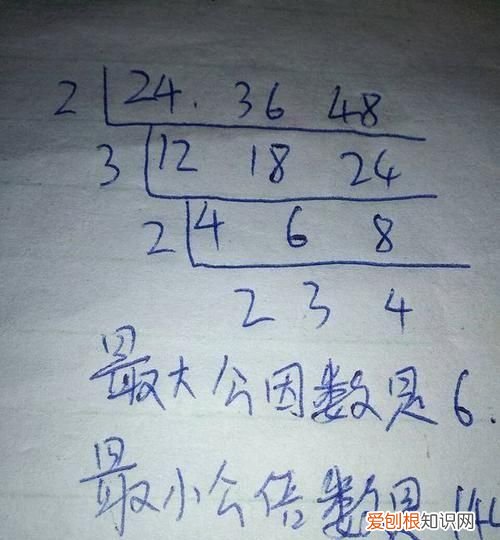 2 24. 36 48
3 12 18 24
2 4 6 8
2 3 4
最大公因数是6.
最小公倍数是144
爱刨根知识网